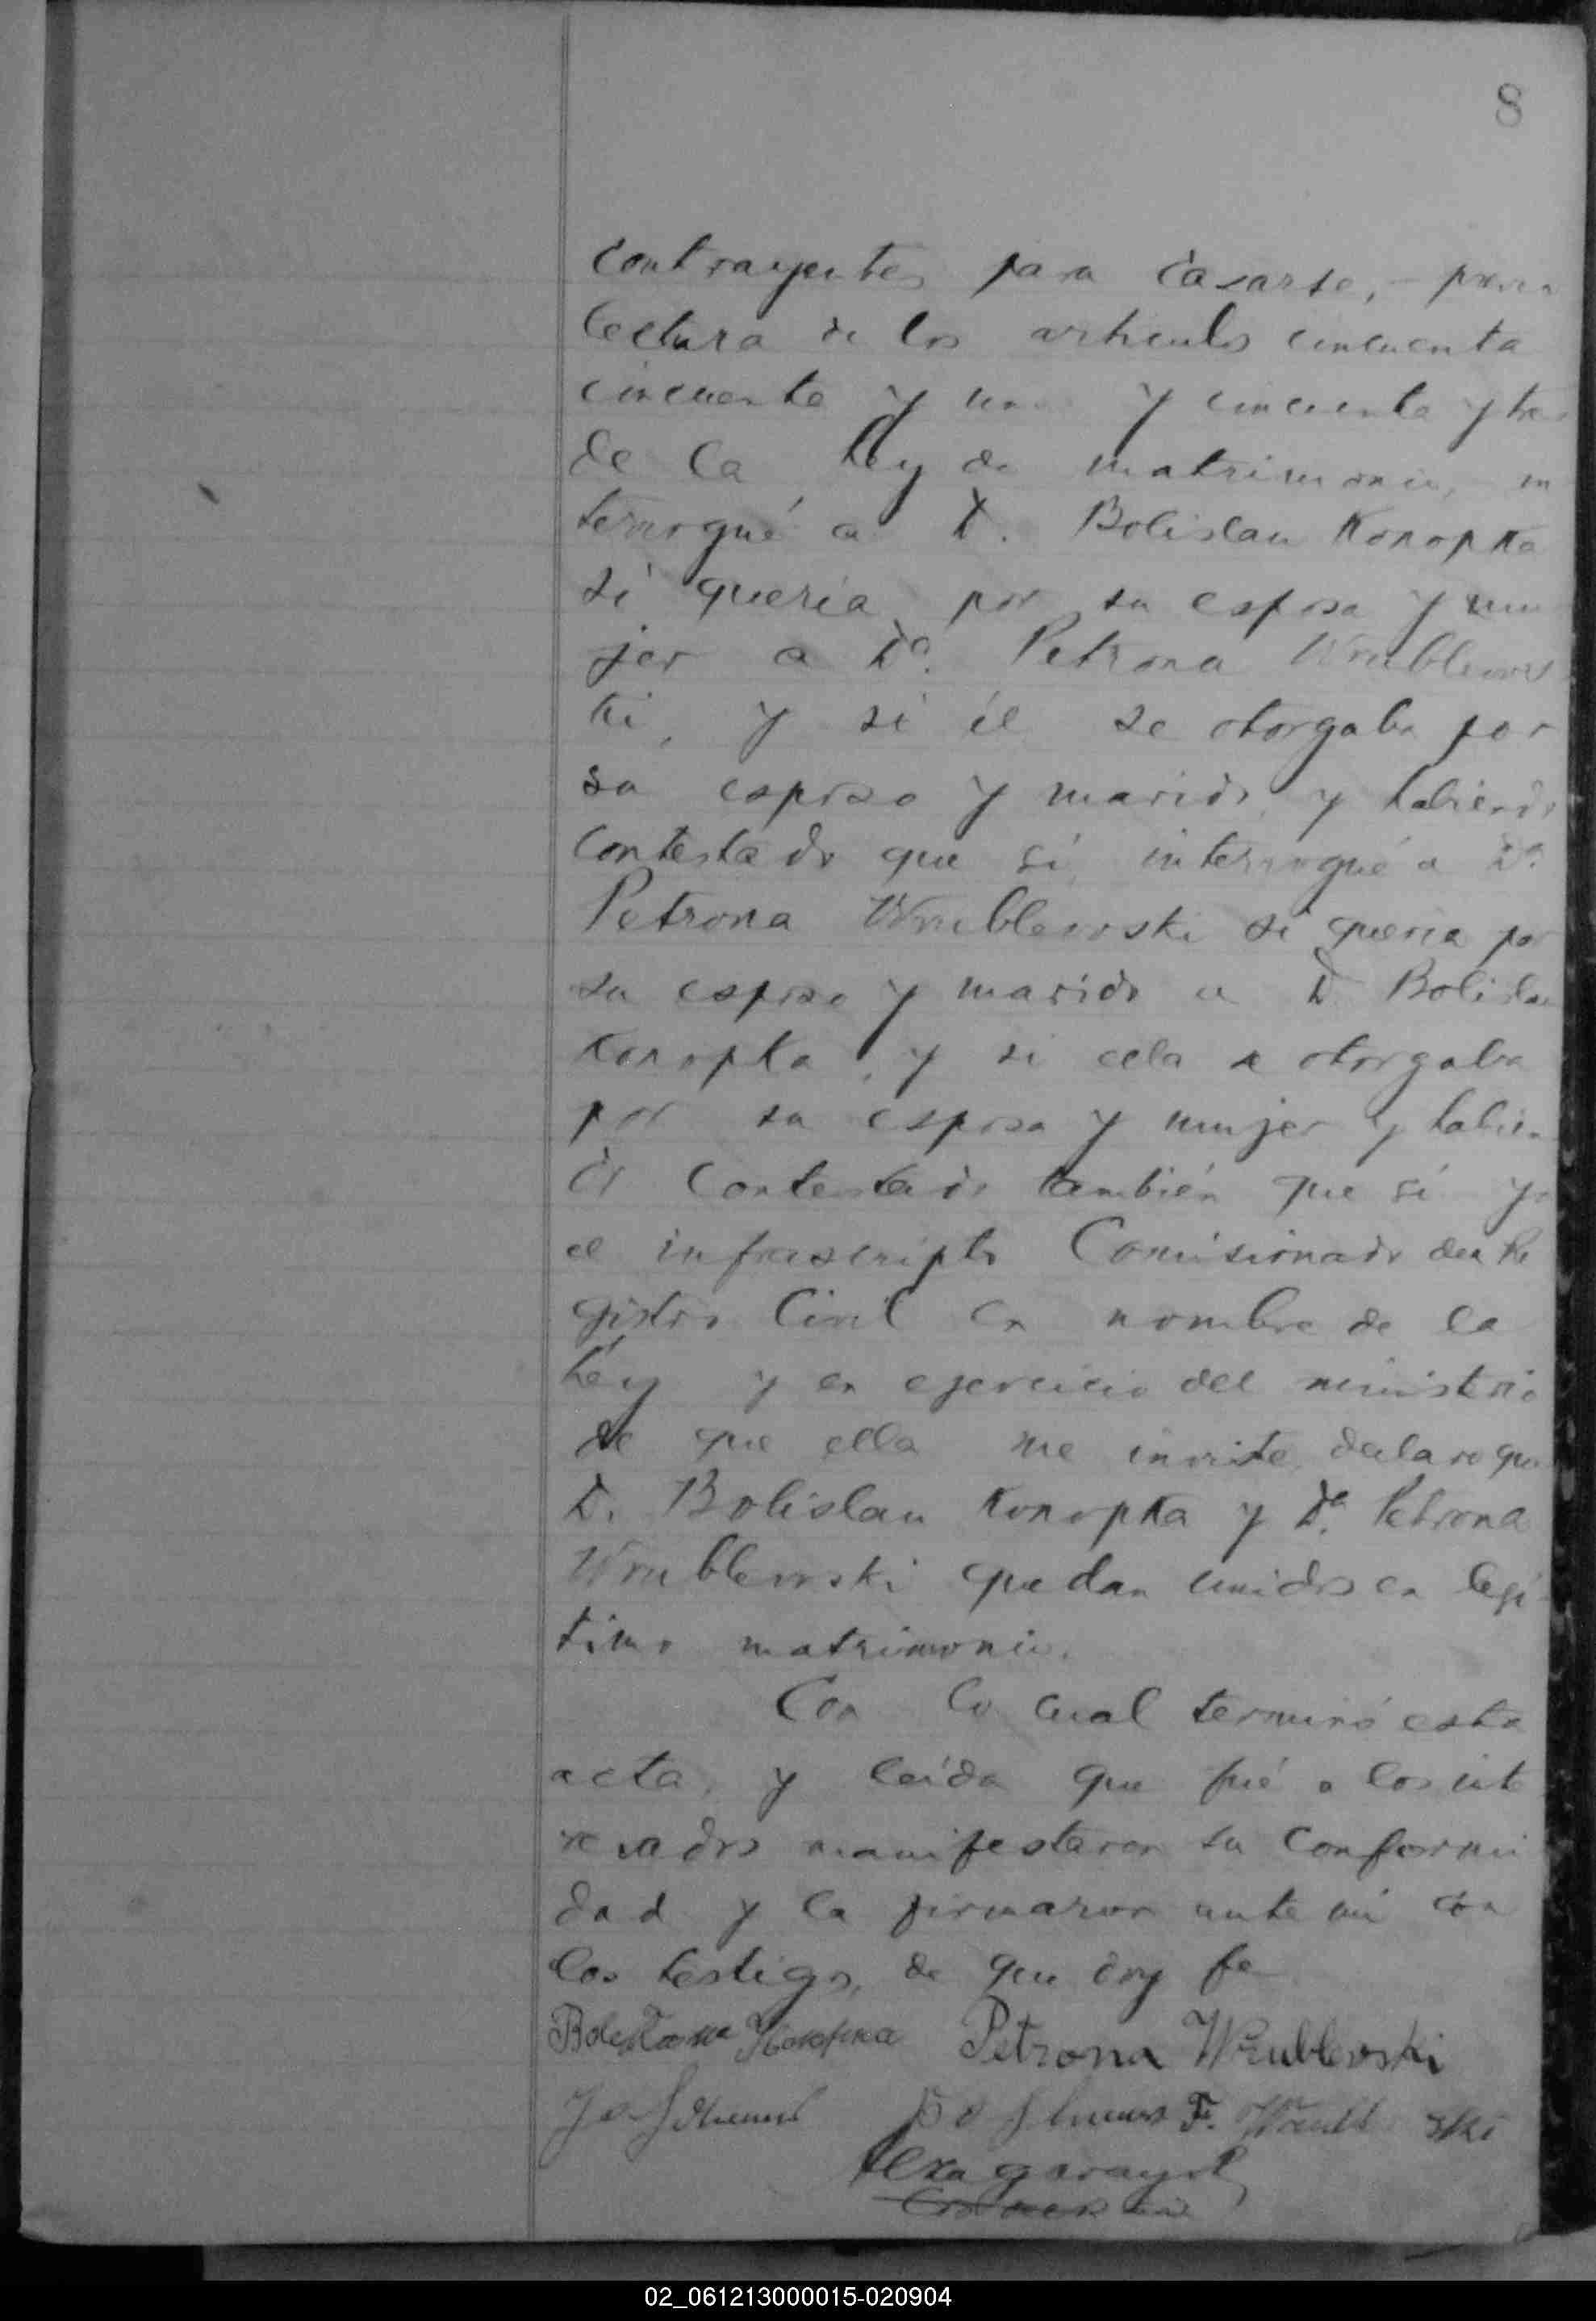 8
contrayentes para casarse, previa
lectura de los articulos cincuenta
cincuenta y uno y cincuenta y tres
de la ley de matrimonio, in
terrogué a D. Bolislau Konopka
si quería por su esposa y mu
jer a Da. Petrona Wrublews
ki, y si él se otorgaba por
su esposo y marido, y habiendo
contestado que sí, interrogué a Da.
Petrona Wrublewski si queria por
su esposo y marido a D. Bolislau
Konopka, y si ella se otorgaba
por su esposa y mujer y habien
do contestado también que sí yo
el infrascripto Comisionado del Re
gistro Civil en nombre de la
ley y en ejercicio del ministerio
de que ella me inviste, declaro que
D. Bolislau Konopka y Da. Petrona
Wrublewski quedan unidos en legí
timo matrimonio.
Con lo cual terminó esta
acta, y leída que fué a los inte
resados manifestaron su conformi
dad y la firmaron ante mí con
los testigos, de que doy fe
Petrona Wrublewski
F.
02_061213000015-020904